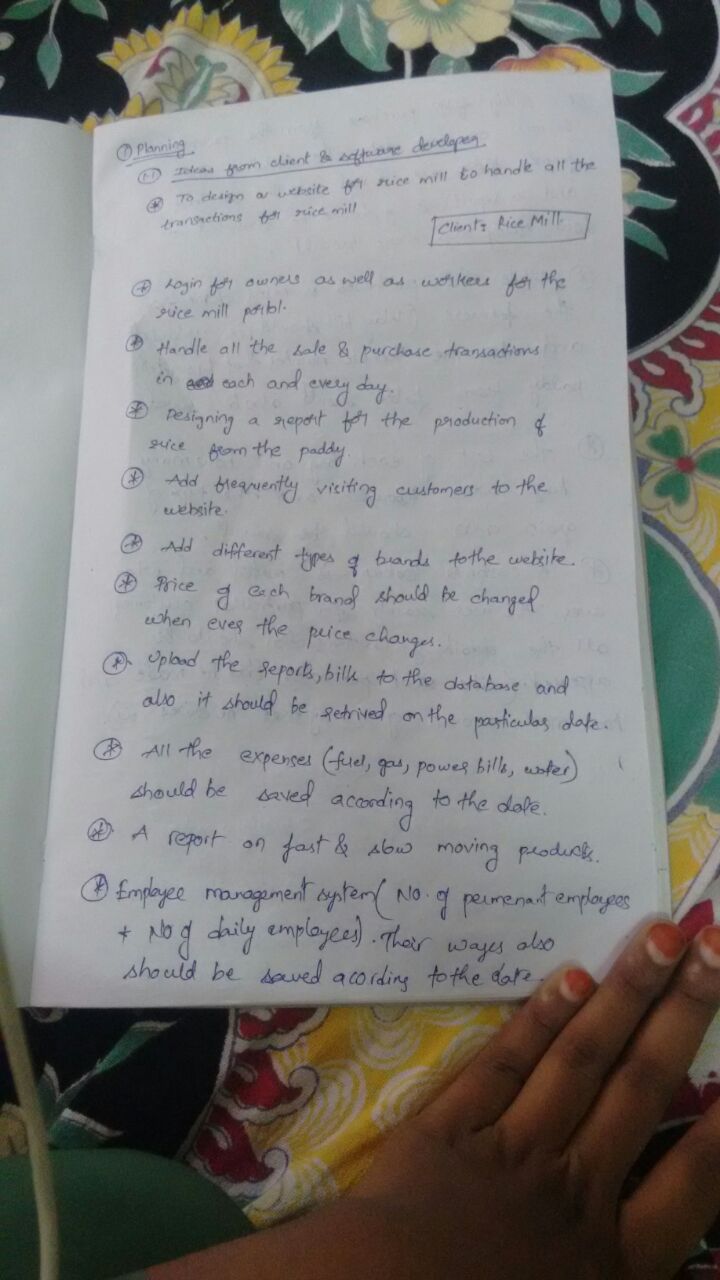 ① Planning
1.1 Ideas from client & software developer
* To design a website for rice mill to handle all the
transactions for rice mill
Client: Rice Mill.
* Login for owners as well as workers for the
rice mill
* Handle all the sale & purchase transactions
in each and every day.
* Designing a report for the production of
rice from the paddy.
* Add frequently visiting customers to the
website.
* Add different types of brands to the website.
* Price of each brand should be changed
when ever the price changes.
* Upload the reports, bills to the database and
also it should be retrived on the particular date.
* All the expenses (fuel, gas, power bills, water)
should be saved according to the date.
* A report on fast & slow moving products.
* Employee management system( No. of permenant employees
+ No of daily employees). Their wages also
should be saved acording to the date.